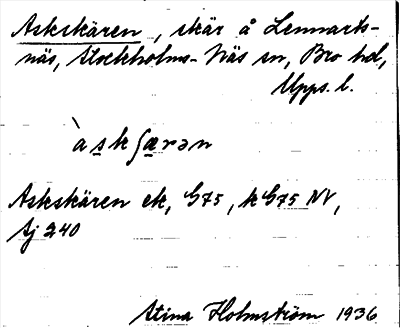 Askskären, skär å Lennarts-
näs, Stockholms-Näs sn, Bro hd,
Upps. l.
`askʃærən
Askskären ek, G75, k G75 NV,
Sj 240
Stina Holmström 1936